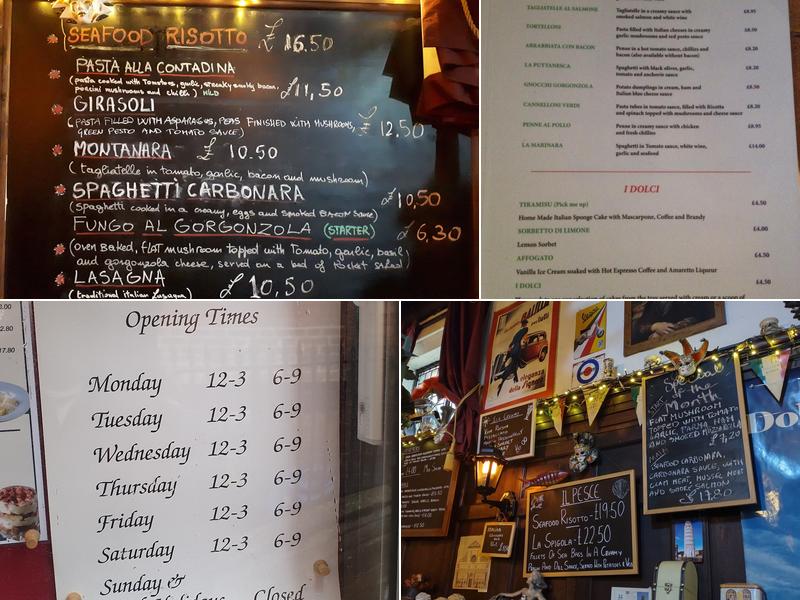 SEAFOOD RISOTTO £ 16.50
PASTA ALLA CONTADINA
(pasta cooked with Tomatoes, garlic, streaky smoky bacon, £11,50
porcini mushrooms and chilli) MILD
GIRASOLI
(PASTA FILLED WITH ASPARAGUS, PEAS FINISHED WITH MUSHROOMS, £ 12.50
GREEN PESTO AND TOMATO SAUCE)
MONTANARA £ 10.50
(tagliatelle in tomato, garlic, bacon and mushroom)
SPAGHETTI CARBONARA £10,50
(Spaghetti cooked in a creamy, eggs and smoked BACON SAUCE)
FUNGO AL GORGONZOLA (STARTER) £ 6,30
(oven baked, flat mushroom topped with tomato, garlic, basil
and gorgonzola cheese, served on a bed of rocket salad)
LASAGNA £ 10,50
(traditional italian lasagna)
TAGLIATELLE AL SALMONE Tagliatelle in a creamy sauce with £8.95
smoked salmon and white wine
TORTELLONI Pasta filled with Italian cheeses in creamy £8.50
garlic mushrooms and red pesto sauce
ARRABBIATA CON BACON Penne in a hot tomato sauce, chillies and £8.20
bacon (also available without bacon)
LA PUTTANESCA Spaghetti with black olives, garlic, £8.20
tomato and anchovie sauce
GNOCCHI GORGONZOLA Potato dumplings in cream, ham and £8.50
Italian blue cheese sauce
CANNELLONI VERDI Pasta tubes in tomato sauce, filled with Risotta £8.20
and spinach topped with mushrooms and cheese sauce
PENNE AL POLLO Penne in a creamy sauce with chicken £8.95
and fresh chillies
LA MARINARA Spaghetti in Tomato sauce, white wine, £14.00
garlic and seafood
I DOLCI
TIRAMISU (Pick me up) £4.50
Home Made Italian Sponge Cake with Mascarpone, Coffee and Brandy
SORBETTO DI LIMONE £4.00
Lemon Sorbet
AFFOGATO £4.50
Vanilla Ice Cream soaked with Hot Espresso Coffee and Amaretto Liqueur
I DOLCI £4.50
Opening Times
Monday 12-3 6-9
Tuesday 12-3 6-9
Wednesday 12-3 6-9
Thursday 12-3 6-9
Friday 12-3 6-9
Saturday 12-3 6-9
Sunday &
Holidays Closed
17.80
eleganza
della Signora
Ice Cream
Special
of the
Month
FLAT MUSHROOM
TOPPED WITH TOMATO
GARLIC, PARMA HAM
AND SMOKED MOZZARELLA
£7,20
SEAFOOD CARBONARA,
CARBONARA SAUCE, WITH
CLAM MEAT, MUSSEL MEAT
AND SMOKED SALMON
£17.80
IL PESCE
SEAFOOD RISOTTO £19.50
LA SPIGOLA £22.50
FILLETS OF SEA BASS IN A CREAMY
PRAWN AND DILL SAUCE, SERVED WITH POTATOES & VEG
ITALIAN
Do